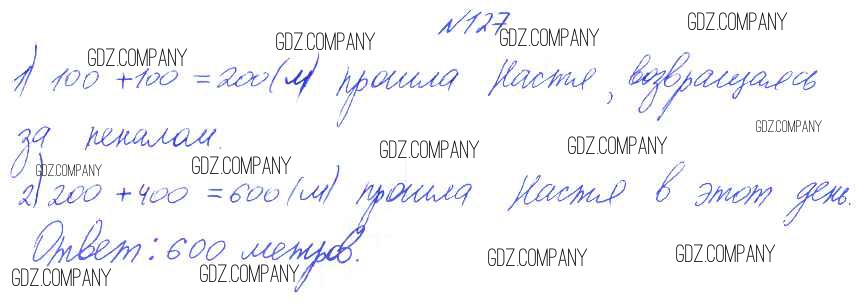 №127 GDZ.COMPANY
GDZ.COMPANY GDZ.COMPANY GDZ.COMPANY
1) 100 + 100 = 200 (м) прошла Настя, возвращаясь
за пеналом. GDZ.COMPANY GDZ.COMPANY GDZ.COMPANY
GDZ.COMPANY GDZ.COMPANY
2) 200 + 400 = 600 (м) прошла Настя в этот день.
Ответ: 600 метров. GDZ.COMPANY GDZ.COMPANY
GDZ.COMPANY GDZ.COMPANY